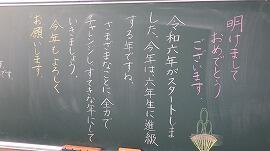 明けまして
おめでとう
ございます。
令和六年がスタートしま
した。今年は六年生に進級
する年ですね。
さまざまなことに全力で
チャレンジし、すてきな年にして
いきましょう。
今年もよろしく
お願いします。
です